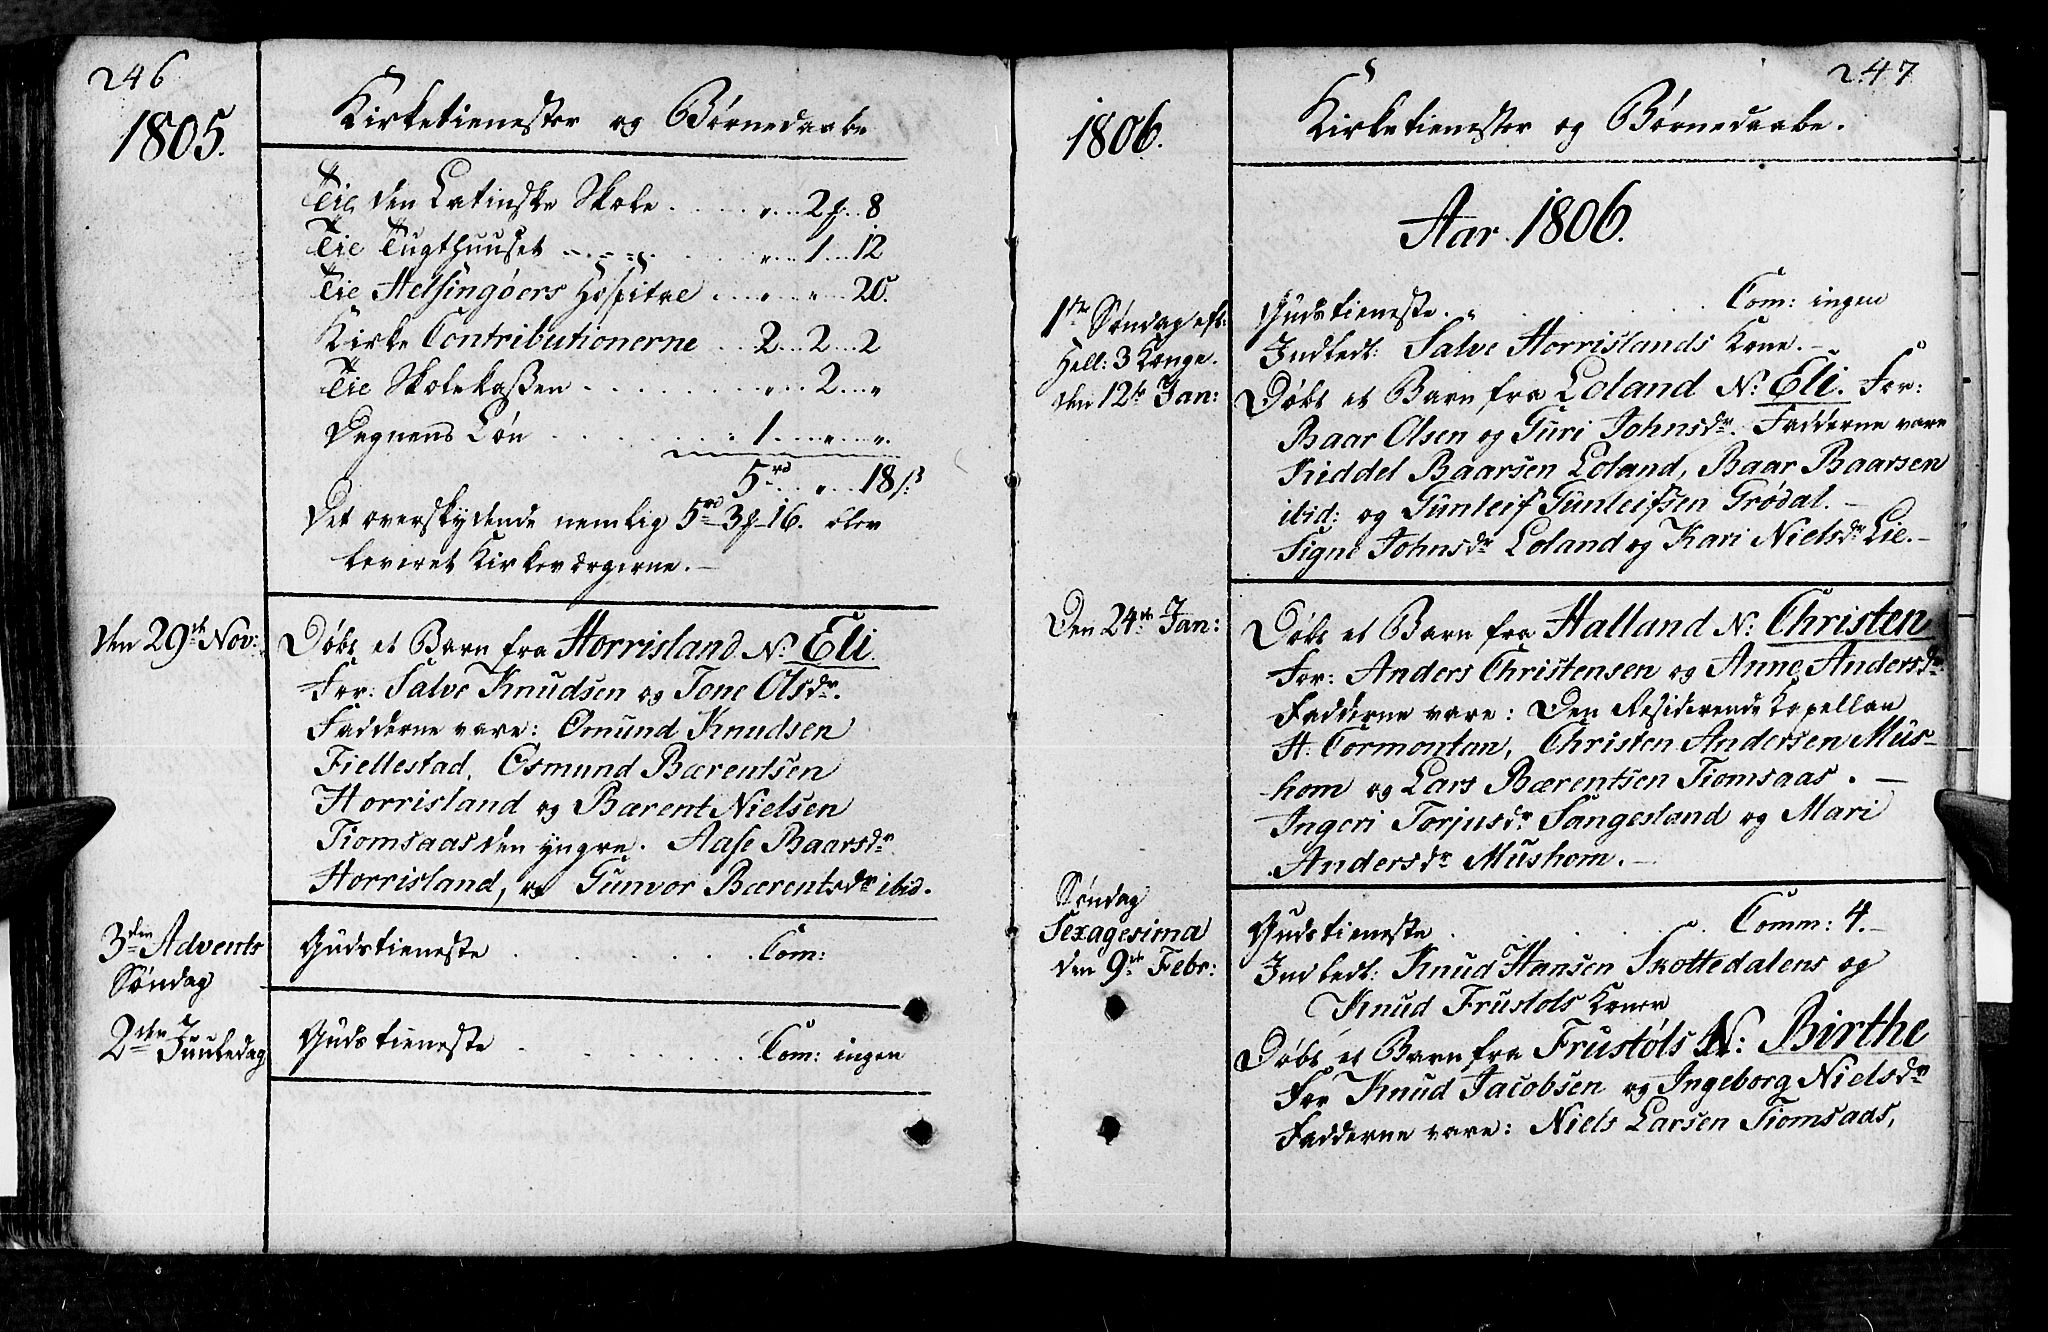 246
1805.
Kirketienester og Børnedaabe
Til den Latinske Skole . . . . . „ . . . 2 f . . 8
Til Tugthuuset . . . . . „ . . . 1 . . . 12
Til Helsingøers Hospital . . . „ . . . „ . . . 20.
Kirke Contributionerne . . 2 . . . 2 . . . 2
Til Skolekaßen . . . . . „ . . . 2 . . . „
Degnens Løn . . . . . 1 . . . „ . . . „
5 rd . . . „ . . . 18 ß
Det overskydende nemlig 5 rd 3 f 16. blev
leveret Kirkeværgerne. –
Den 29de Nov:
Døbt et Barn fra Horrisland N. Eli
For: Salve Knudsen og Tone Olsdr.
Fadderne vare: Omund Knudsen
Fiellestad, Osmund Bærentsen
Horrisland og Bærent Nielsen
Tiomsaas den yngre. Aase Baarsdr
Horrisland, og Gunvor Bærentsdr ibid.
3die Advents
Søndag
Gudstieneste . . . . . Com:
2den Juuledag
Gudstieneste . . . . . Com: ingen
247
1806.
Kirketienester og Børnedaabe.
Aar 1806.
1ste Søndag eft:
Hell: 3 Konge.
den 12te Jan:
Gudstieneste. . . . . . Com: ingen
Indledt: Salve Horrislands Kone. –
Døbt et Barn fra Loland N. Eli. For:
Baar Olsen og Guri Johnsdr. Fadderne vare
Kiddel Baarsen Loland, Baar Baarsen
ibid: og Gunleif Gunleifsen Grødal. –
Signe Johnsdr Loland og Kari Nielsdr Lie. –
Den 24de Jan:
Døbt et Barn fra Halland N. Christen
For: Anders Christensen og Anne Andersdr.
Fadderne vare: Den Residerende Capellan
H. Tormontan, Christen Andersen Mus-
hom og Lars Bærentsen Tiomsaas. –
Ingeri Torjusdr Sangesland og Mari
Andersdr Mushom. –
Søndag
Sexagesima
den 9de Febr:
Gudstieneste . . . . . Comm: 4. –
Indledt: Knud Hansen Skottedalens og
Knud Frustøls Koner
Døbt et Barn fra Frustøls N: Birthe
For Knud Jacobsen og Ingeborg Nielsdr
Fadderne vare: Niels Larsen Tiomsaas,